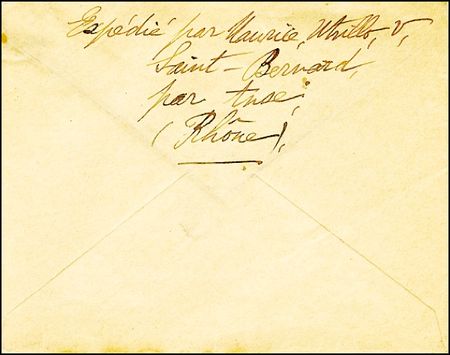 Expédié par Maurice, Utrillo, V,
Saint-Bernard,
par Anse,
(Rhône),